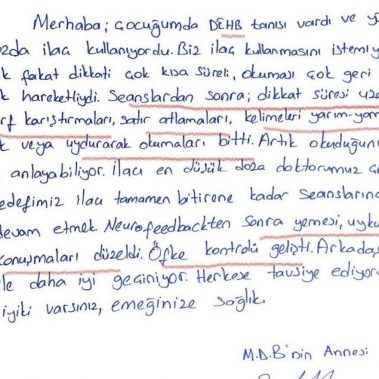 Merhaba; çocuğumda DEHB tanısı vardı ve yü
ozda ilaç kullanıyordu. Biz ilaç kullanmasını istemiy
k fakat dikkati çok kısa süreli, okuması çok geri
k hareketliydi. Seanslardan sonra; dikkat süresi uza
rf karıştırmaları, satır atlamaları, kelimeleri yarım-yam
k veya uydurarak okumaları bitti. Artık okuduğun
anlayabiliyor. ilacı en düşük doza doktorumuz
edefimiz ilacı tamamen bitirene kadar Seanslarına
devam etmek Neurofeedbackten sonra yemesi, uyku
konuşmaları düzeldi. Öfke kontrolü gelişti. Arkadaş
le daha iyi geçiniyor. Herkese tavsiye ediyoru
iyiki varsınız, emeğinize sağlık.
M.D.B'nin Annesi